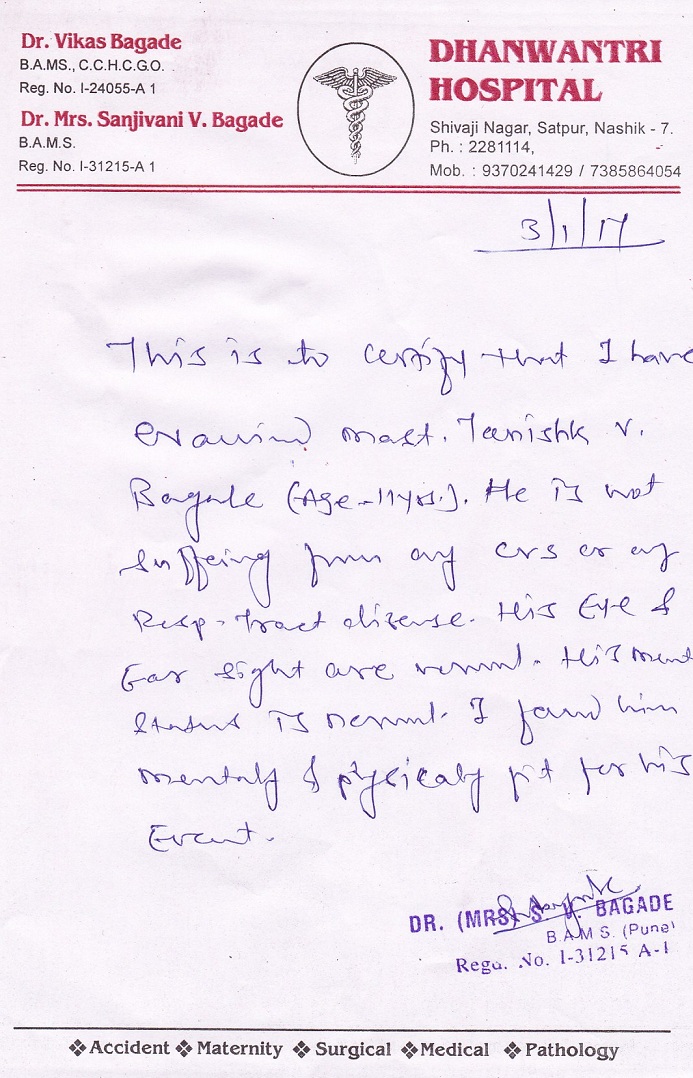 Dr. Vikas Bagade
B.A.MS., C.C.H.C.G.O.
Reg. No. I-24055-A 1
Dr. Mrs. Sanjivani V. Bagade
B.A.M.S.
Reg. No. I-31215-A 1
DHANWANTRI
HOSPITAL
Shivaji Nagar, Satpur, Nashik - 7.
Ph. : 2281114,
Mob. : 9370241429 / 7385864054
3/1/17
This is to certify that I have
examined mast. Tanishk V.
Bagade (Age-11yrs.). He is not
suffering from any CVS or any
Resp. tract disease. His Eye &
Ear sight are normal. His ment
status is normal. I found him
mentaly & physicaly fit for his
Event.
DR. (MRS) S. V. BAGADE
B.A.M S. (Pune)
Regd. No. I-31215 A-1
❖ Accident ❖ Maternity ❖ Surgical ❖ Medical ❖ Pathology